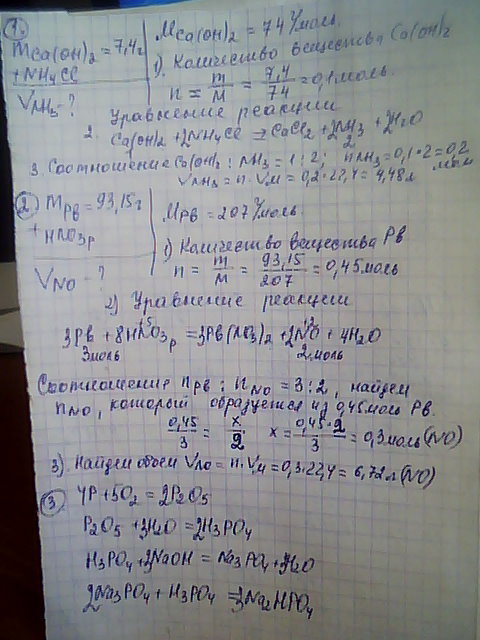 1.
m Ca(OH)2 = 7,4 г
+ NH4Cl
VNH3 - ?
MCa(OH)2 = 74 г/моль.
1). Количество вещества Ca(OH)2
n = m/M = 7,4/74 = 0,1 моль.
Уравнение реакции
2. Ca(OH)2 + 2NH4Cl => CaCl2 + 2NH3 + 2H2O
2
3. Соотношение Ca(OH)2 : NH3 = 1 : 2; nNH3 = 0,1 · 2 = 0,2 моль
VNH3 = n · VM = 0,2 · 22,4 = 4,48 л
2 mPb = 93,15 г
+ HNO3 р
VNO - ?
MPb = 207 г/моль
1) Количество вещества Pb
n = m/M = 93,15/207 = 0,45 моль
2) Уравнение реакции
3Pb + 8HN+5O3 р = 3Pb(NO3)2 + 2N+2O + 4H2O
3 моль 2 моль
Соотношение nPb : nNO = 3 : 2, найдем
nNO, который образуется из 0,45 моль Pb.
0,45/3 = x/2 x = 0,45·2/3 = 0,3 моль (NO)
3). Найдем объем VNO = n · VM = 0,3 · 22,4 = 6,72 л (NO)
3. 4P + 5O2 = 2P2O5
P2O5 + 3H2O = 2H3PO4
H3PO4 + 3NaOH = Na3PO4 + 3H2O
2Na3PO4 + H3PO4 = 3Na2HPO4